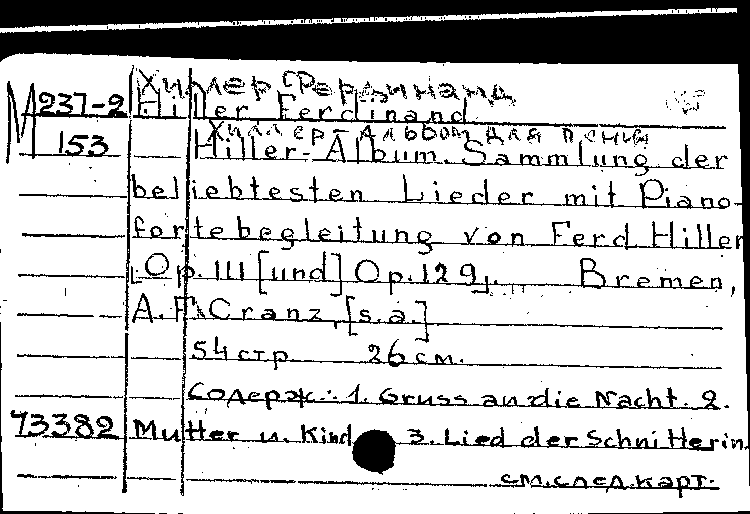 Хиллер Фердинанд
М 237-2 Hiller Ferdinand
Хиллер-Альбом для пения
153 Hiller-Album. Sammlung der
beliebtesten Lieder mit Piano-
fortebegleitung von Ferd Hiller
Op. 111 [und] Op. 129. Bremen,
A. F. Cranz, [s.a.]
54 стр 26 см.
Содерж.: 1. Gruss an die Nacht. 2.
73382 Mutter u. Kind 3. Lied der Schnitterin.
см. след. карт.